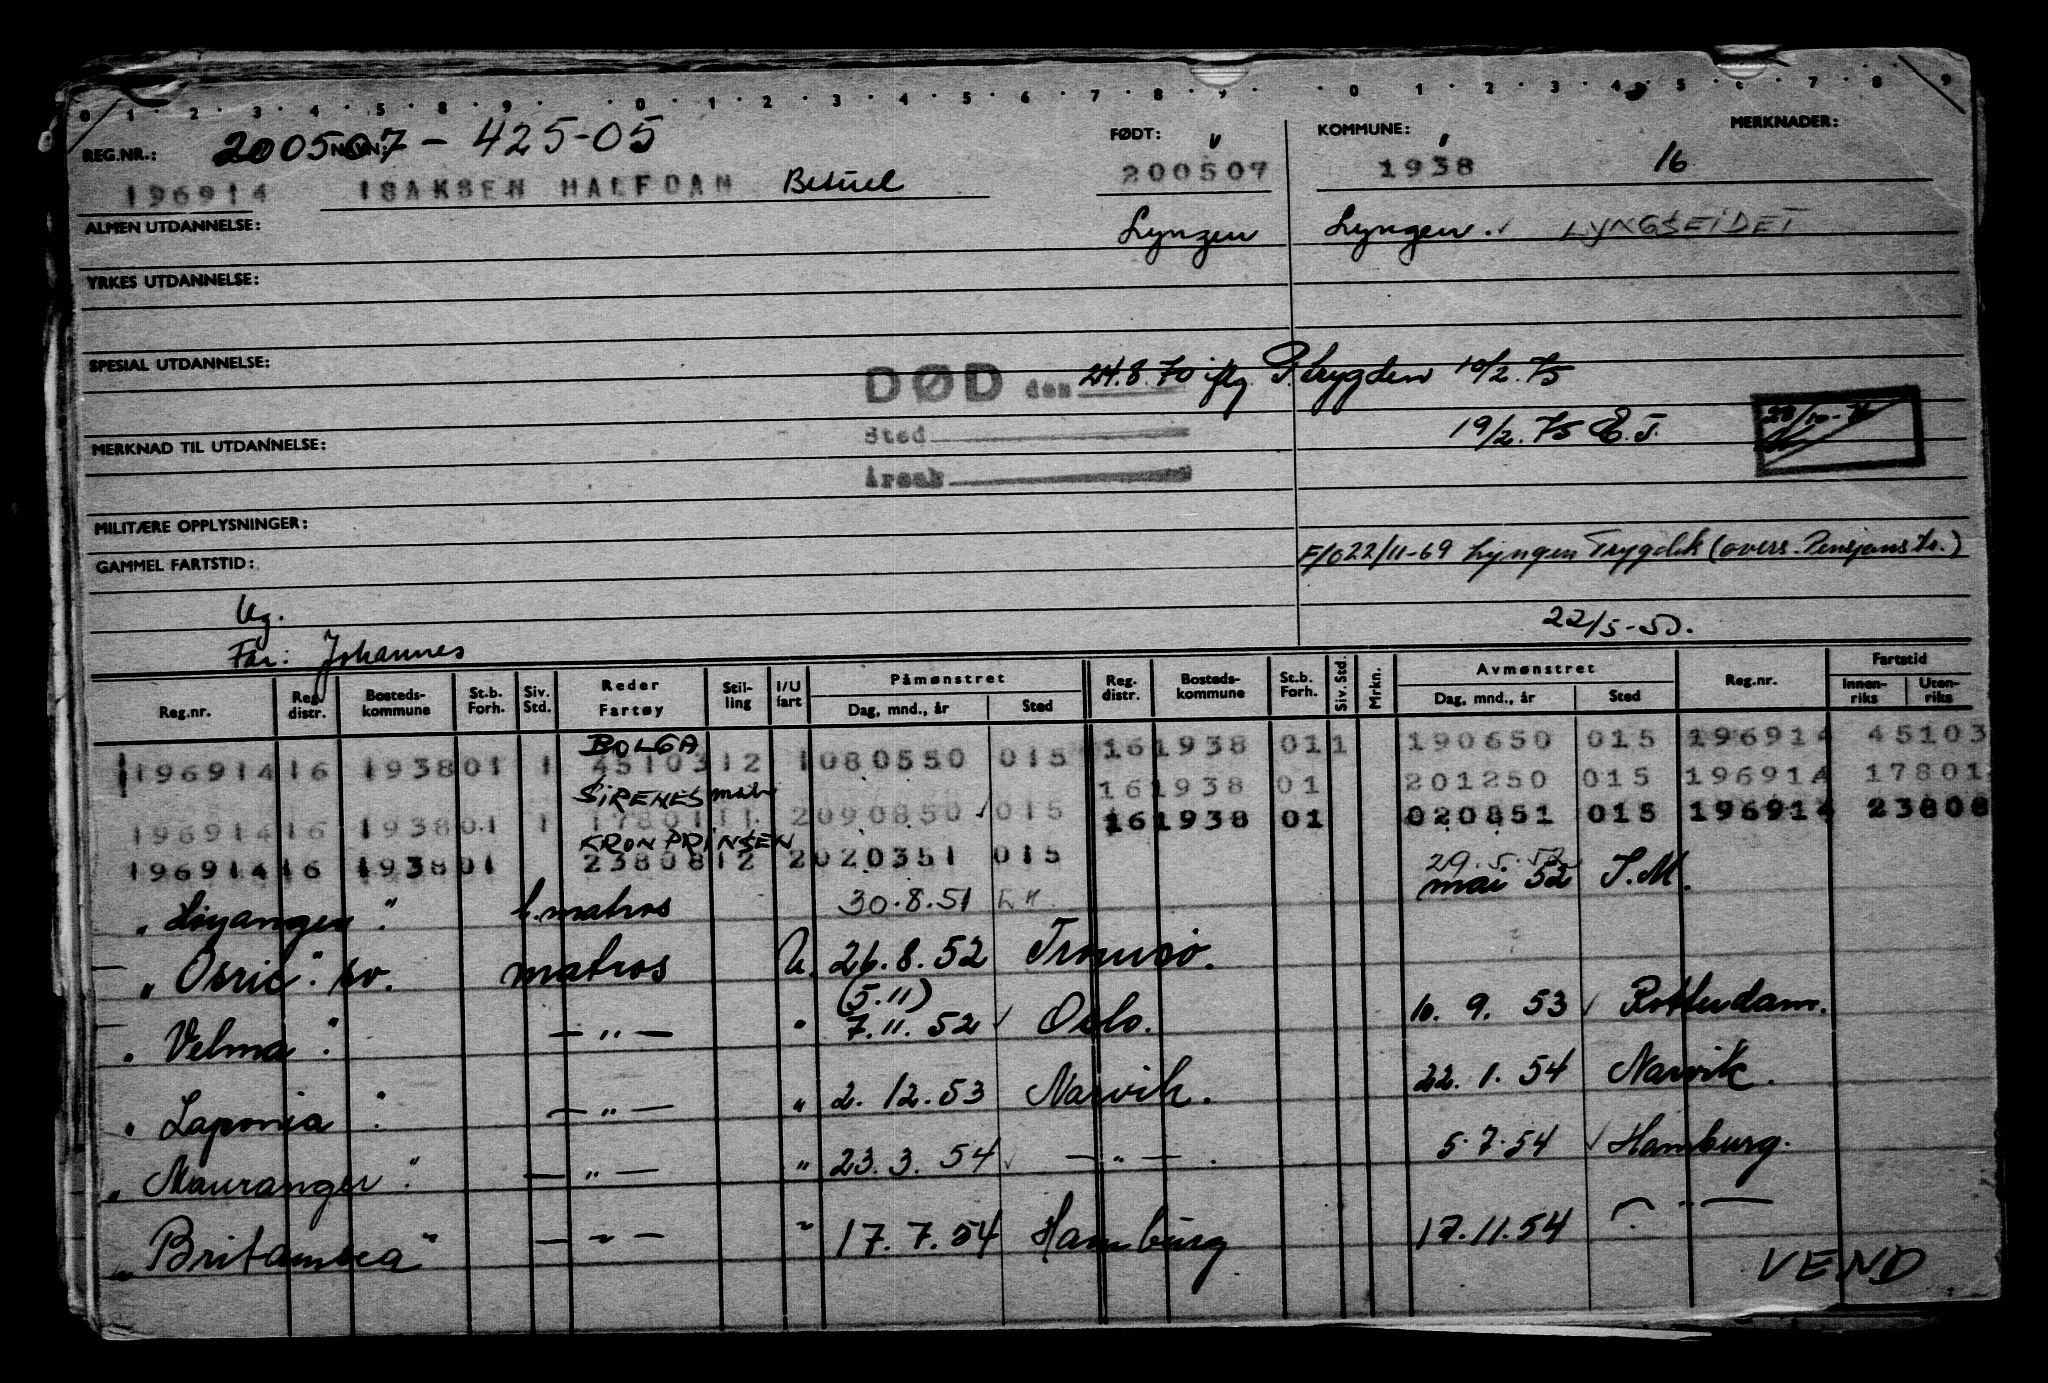 0 1 2 3 4 5 8 9 0 1 2 3 4 5 6 7 8 9 0 1 2 3 4 5 6 7 8 9
REG.NR.: NAVN: 200507 - 425-05 FØDT: KOMMUNE: MERKNADER:
196914 ISAKSEN HALFDAN Betuel 200507 1938 16
ALMEN UTDANNELSE: Lyngen Lyngen. LYNGSEIDET
YRKES UTDANNELSE:
SPESIAL UTDANNELSE:
DØD den 24.8.70 iflg. P.trygden 10/2.75
Sted 19/2.75 E.T.
MERKNAD TIL UTDANNELSE:
Årsak
MILITÆRE OPPLYSNINGER:
F/022/11-69 Lyngen Trygdek (overs. Pensjonstr.)
GAMMEL FARTSTID:
Ug. 22/5-50.
Far: Johannes
Reg.nr. Reg. distr. Bosteds-kommune St.b. Forh. Siv. Std. Reder Fartøy Stil-ling I/U fart Påmønstret Dag, mnd., år Sted Reg. distr. Bosteds-kommune St.b. Forh. Siv. Std. Mrkn. Avmønstret Dag, mnd., år Sted Reg.nr. Fartstid Innen-riks Uten-riks
BOLGA
196914 16 1938 01 1 45103 12 1 080550 015 16 1938 01 1 190650 015 196914 45103
SIRENES matr
196914 16 1938 01 1 17801 11 2 090850 015 16 1938 01 201250 015 196914 17801
KRONPRINSEN
196914 16 1938 01 23808 12 2 020351 015 16 1938 01 020851 015 196914 23808
29.5.52
"Høyanger" l.matros 30.8.51 mai 52 S.M.
"Osric" kv. matros U. 26.8.52 Tromsø.
(5.11)
"Velma" — " — " 7.11.52 Oslo. 10.9.53 Rotterdam.
"Laponia" — " — " 2.12.53 Narvik. 22.1.54 Narvik.
"Mauranger" — " — " 23.3.54 — " — . 5.7.54 Hamburg.
"Britamsea" — " — " 17.7.54 Hamburg 17.11.54 — " —
VEND